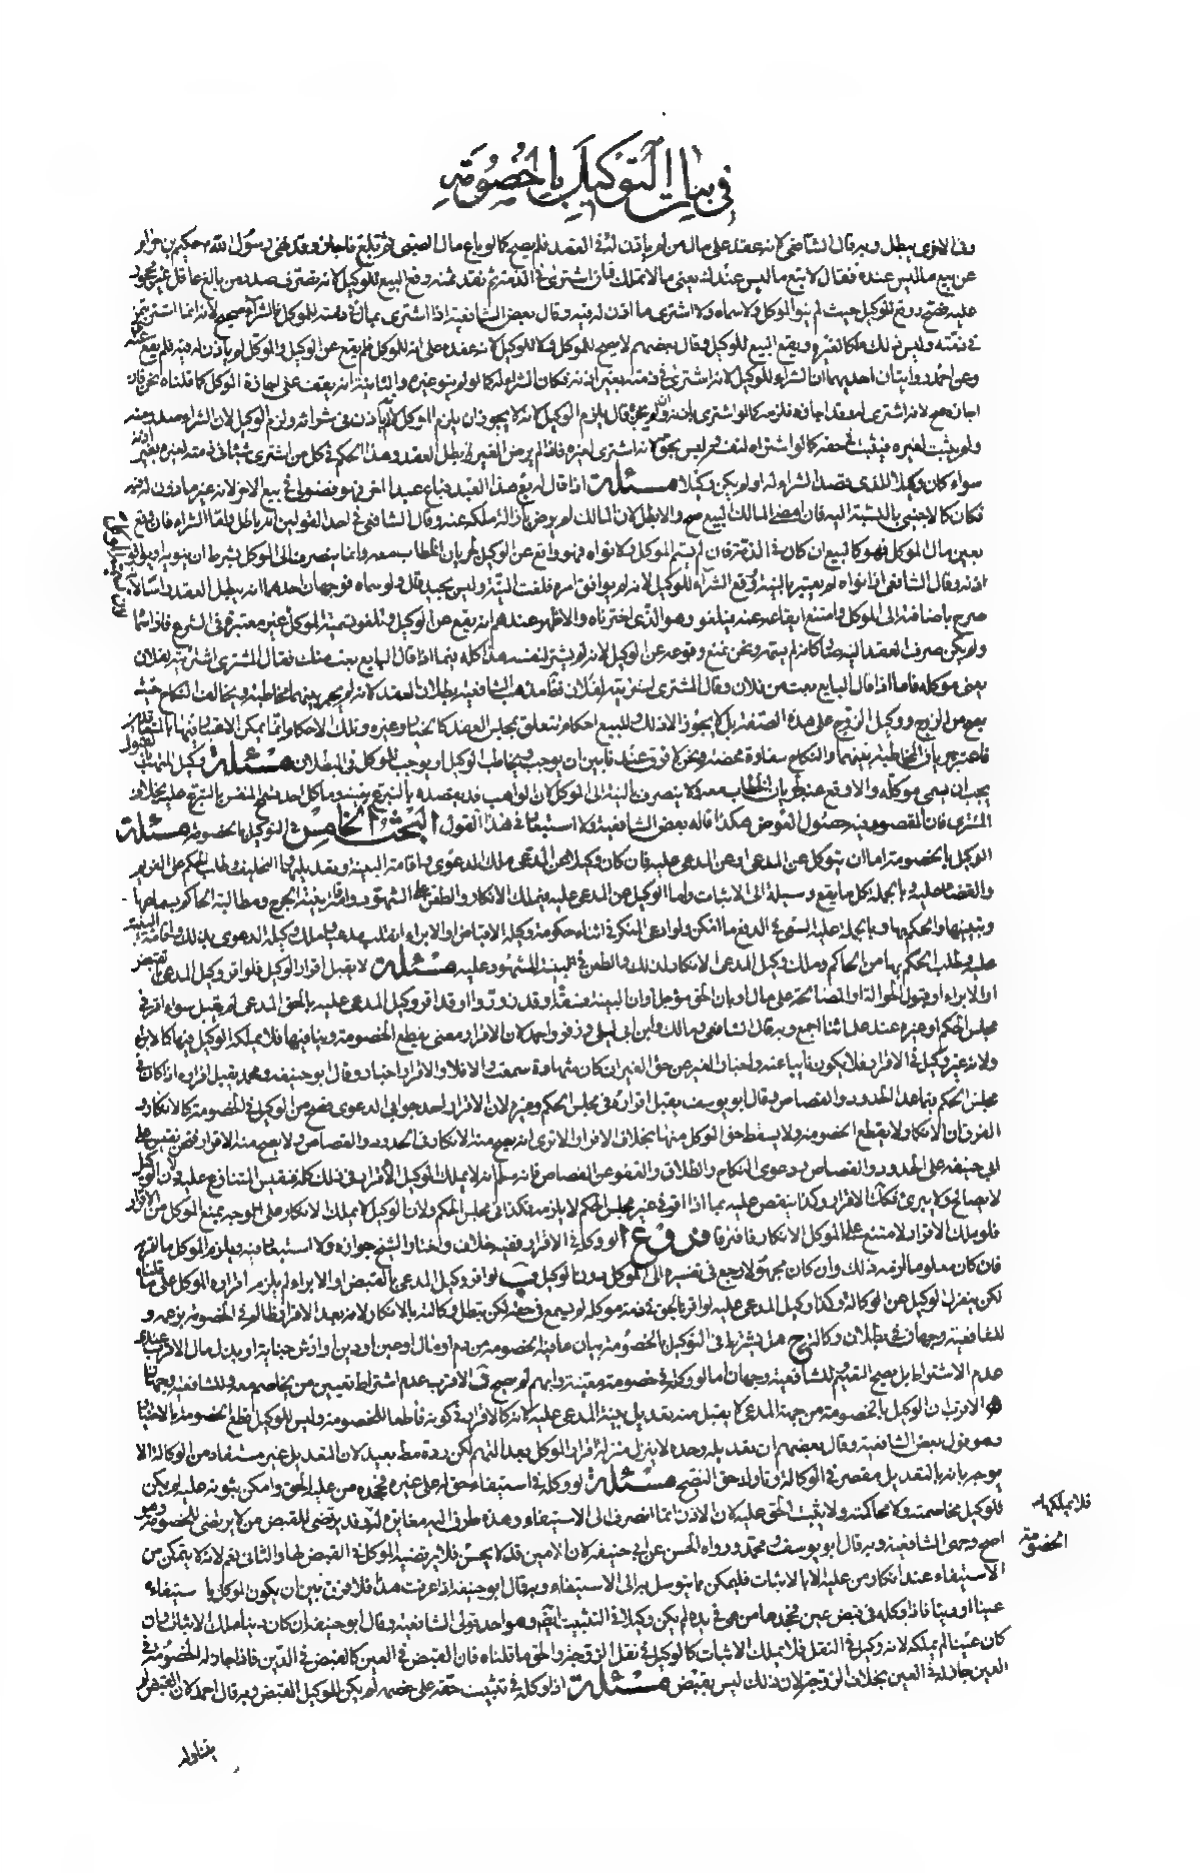 في بيان التوكيل بالخصومة
وفي الاخرى يبطل وبه قال الشافعي لانه عقد على مال من لم يأذن له في العقد فلم يصح كما لو باع مال الصبي ثم بلغ فاجاز وقد نهى رسول الله حكيم بن حزام
عن بيع ما ليس عنده فقال لا تبع ما ليس عندك يعني ما لا تملك فان اشترى في الذمة ثم نقد ثمنه وقع البيع للوكيل لانه تصرف صدر من بالغ عاقل غير محجور
عليه فصح ووقع للوكيل حيث لم ينو الموكل ولا سماه ولا اشترى ما اذن له فيه وقال بعض الشافعية اذا اشترى بمال في ذمته للموكل فالشراء صحيح لانه انما اشترى بثمن
في ذمته وليس ذلك ملكا لغيره ويقع البيع للوكيل وقال بعضهم لا يصح للموكل ولا للوكيل لانه عقده على انه للموكل فلم يقع عن الوكيل والموكل لم يأذن له فيه فلم يقع عنه
وعن احمد روايتان احديهما ان الشراء للوكيل لانه اشترى في ذمته بغير اذن غيره فكان الشراء له كما لو لم ينو غيره والثانية انه يقف على اجازة الموكل كما قلناه نحن فان
اجازه صح لانه اشترى له وقد اجازه فلزمه كما لو اشترى باذنه وان لم يجز قال يلزم الوكيل لانه لا يجوز ان يلزم الموكل لانه لم يأذن في شرائه ولزم الوكيل لان الشراء صدر منه
ولم يثبت لغيره فيثبت في حقه كما لو اشتراه لنفسه وليس بجيد لانه اشترى لغيره فاذا لم يرض الغير به بطل العقد وهذا الحكم في كل من اشترى شيئا في ذمته لغيره بغير اذنه
سواء كان وكيلا للذي قصد الشراء له او لم يكن وكيلا مسئلة اذا قال له بع هذا العبد فباع عبدا اخر فهو فضولي في بيع الاخر لانه غير مأذون له فيه
فكان كالاجنبي بالنسبة اليه فان امضى المالك البيع صح والا بطل لان المالك لم يرض بازالة ملكه عنه وقال الشافعي في احد القولين انه باطل واما الشراء فان وقع
بعين مال الموكل فهو كالبيع ان كان في الذمة فان لم يسم الموكل ولا نواه فهو واقع عن الوكيل لجريان الخطاب معه وانما ينصرف الى الموكل بشرط ان ينويه او يوافق
اذنه وقال الشافعي اذا نواه لم يعتبر بالنية ووقع الشراء للوكيل لانه لم يوافق امره فلغت النية وليس بجيد قال ولو سماه فوجهان احدهما انه يبطل العقد راسا لانه
صرح باضافته الى الموكل وامتنع ايقاعه عنه فيلغو وهو الذي اخترناه والاظهر عندهم انه يقع عن الوكيل وتلغو تسمية الموكل غير معتبرة في الشرع فاذا سماه
ولم يكن صرف العقد اليه صار كانه لم يسمه ونحن نمنع وقوعه عن الوكيل لانه لم يشتر لنفسه هذا كله فيما اذا قال البايع بعت منك فقال المشتري اشتريته لفلان
يعني موكله فاما اذا قال البايع بعت من فلان وقال المشتري اشتريته لفلان فظاهر مذهب الشافعية بطلان العقد لانه لم يجر بينهما مخاطبة ويخالف النكاح حيث
يصح من الزوج ووكيل الزوج على هذه الصفة بل لا يجوز الا ذلك وللبيع احكام تتعلق بمجلس العقد كالخيار وغيره وتلك الاحكام انما يمكن الاعتبار فيها بالمتعاقدين
فاعتبر جريان المخاطبة بينهما والنكاح سفارة محضة ونحن لا فرق عندنا بين ان يوجب ويخاطب الوكيل او يوجب للموكل في البطلان مسئلة وكيل المتهب لقبوله
يجب ان يسمي موكله والا وقع عنه لجريان الخطاب معه ولا ينصرف بالنية الى الموكل لان الواهب قد يقصده بالتبرع بعينه وما كل احد تسمح النفس بالتبرع عليه بخلاف
المشتري فان المقصود فيه حصول العوض هكذا قاله بعض الشافعية ولا استبعاد في هذا القول البحث الخامس في التوكيل بالخصومة مسئلة
الوكيل بالخصومة اما ان يتوكل عن المدعي او عن المدعى عليه فان كان وكيلا عن المدعي ملك الدعوى واقامة البينة وتعديلها والتحليف وطلب الحكم على الغريم
والقضاء عليه وبالجملة كل ما يقع وسيلة الى الاثبات واما الوكيل عن المدعى عليه فيملك الانكار والطعن على الشهود واقامة بينة الجرح ومطالبة الحاكم بسماعها
وتبينها والحكم بها وبالجملة عليه السعي في الدفع ما امكن ولو ادعى المنكر في اثناء حكومة وكيله الاقباض او الابراء انقلب مدعيا وملك وكيله الدعوى بذلك واقامة البينة
عليه وطلب الحكم بها من الحاكم وملك وكيل المدعي الانكار لذلك والطعن في بينة الشهود عليه مسئلة لا يقبل اقرار الوكيل فلو اقر وكيل المدعي بقبض
او الابراء او قبول الحوالة او المصالحة على مال او بان الحق مؤجل او ان البينة فسقة او قذفة او زورا او اقر وكيل المدعى عليه بالحق المدعى لم يقبل سواء اقر في
مجلس الحكم او غيره عند علمائنا اجمع وبه قال الشافعي ومالك وابن ابي ليلى وزفر واحمد لان الاقرار معنى يقطع الخصومة وينافيها فلا يملكه الوكيل فيها كالابراء
ولانه غير وكيل في الاقرار فلا يكون نايبا عنه ولا اخبار الغير عن حق الغير ان كان شهادة سمعت والا فلا والاقرار اخبار وقال ابو حنيفة ومحمد يقبل اقراره اذا كان في
مجلس الحكم فيما عدا الحدود والقصاص وقال ابو يوسف يقبل اقراره في مجلس الحكم وغيره لان الاقرار احد جوابي الدعوى فصح من الوكيل في الخصومة كالانكار و
الفرق ان الانكار لا يقطع الخصومة ولا يسقط حق الموكل منها بخلاف الاقرار الا ترى انه يصح منه الانكار في الحدود والقصاص ولا يصح منه الاقرار فنحن نقيس على
ابي حنيفة على الحدود والقصاص ودعوى النكاح والطلاق والعفو عن القصاص فانه سلم انه لا يملك الوكيل الاقرار في ذلك كله فنقيس المتنازع عليه ولان الوكيل
لا يصالح ولا يبرئ فكذا الاقرار وكذا ينقض عليه بما اذا اقر في غير مجلس الحكم لا يلزمه فكذا في مجلس الحكم ولان الوكيل لا يملك الانكار على الوجه يمنع الموكل من الاقرار
فلو ملك الاقرار لامتنع على الموكل الانكار فافترقا فروع ا لو وكله في الاقرار ففيه خلاف واختار الشيخ جوازه ولا استبعاد فيه ويلزم الموكل ما اقر به
فان كان معلوما لزمه ذلك وان كان مجهولا رجع في تفسيره الى الموكل دون الوكيل ب لو اقر وكيل المدعي بالقبض او الابراء لم يلزم اقراره الموكل على ما قلناه
لكن ينعزل الوكيل عن الوكالة وكذا وكيل المدعى عليه لو اقر بالحق في ذمة موكله لم يسمع في حقه لكن تبطل وكالته بالانكار لانه بعد الاقرار ظالم في الخصومة بزعمه و
للشافعية وجهان في بطلان وكالته ج هل يشترط في التوكيل بالخصومة بيان ما فيه الخصومة من دم او مال او عين او دين او ارش جناية او بدل مال الاقرب عندي
عدم الاشتراط بل يصح التعميم للشافعية وجهان اما لو وكله في خصومة معينة وابهم لم يصح د الاقرب عدم اشتراط تعيين من يخاصم معه وللشافعية وجهان
ه الاقرب ان الوكيل بالخصومة من جهة المدعى لا يقبل منه تعديل بينة المدعى عليه لانه كالاقرار في كونه قاطعا للخصومة وليس للوكيل قطع الخصومة بالاختيار
وهو قول بعض الشافعية وقال بعضهم ان تعديله وحده لا ينزل منزلة اقرار الموكل بعدالتهم لكن رده مطلقا بعيد لان التعديل غير مستفاد من الوكالة الا
يوجه بانه بالتعديل مقصر في الوكالة وتارك حق النصح مسئلة لو وكله في استيفاء حق له على غيره فجحده من عليه الحق وامكن ثبوته عليه لم يكن
للوكيل مخاصمته ولا محاكمته ولا تثبيت الحق عليه لان الاذن انما انصرف الى الاستيفاء وهذه طرق اليه مغايرة له وقد يرتضي للقبض من لا يرتضي للخصومة وهو
اصح وجهي الشافعية وبه قال ابو يوسف ومحمد ورواه الحسن عن ابي حنيفة لان الامين قد لا يحسن فلا يرتضيه الموكل في القبض لها والثاني نعم لانه لا يتمكن من
الاستيفاء عند انكار من عليه الا بالاثبات فليمكن مما يتوسل به الى الاستيفاء وبه قال ابو حنيفة اذا عرفت هذا فلا فرق بين ان يكون الموكل باستيفائه
عينا او دينا فاذا وكله في قبض عين فجحدها من هي في يده لم يكن وكيلا في التثبيت ايضا وهو احد قولي الشافعية وقال ابو حنيفة ان كان دينا ملك الاثبات وان
كان عينا لم يملكه لانه وكيل في النقل فلا يملك الاثبات كالوكيل في نقل الزوجة والحق ما قلناه فان القبض في العين كالقبض في الدين فاذا جاز له الخصومة في
العين جاز له في العين بخلاف الزوجة لان ذلك ليس بقبض مسئلة اذا وكله في تثبيت حقه على خصمه لم يكن للوكيل القبض وبه قال احمد لان القبض لم
فلا يملكها مع
الخصومة
يتناوله